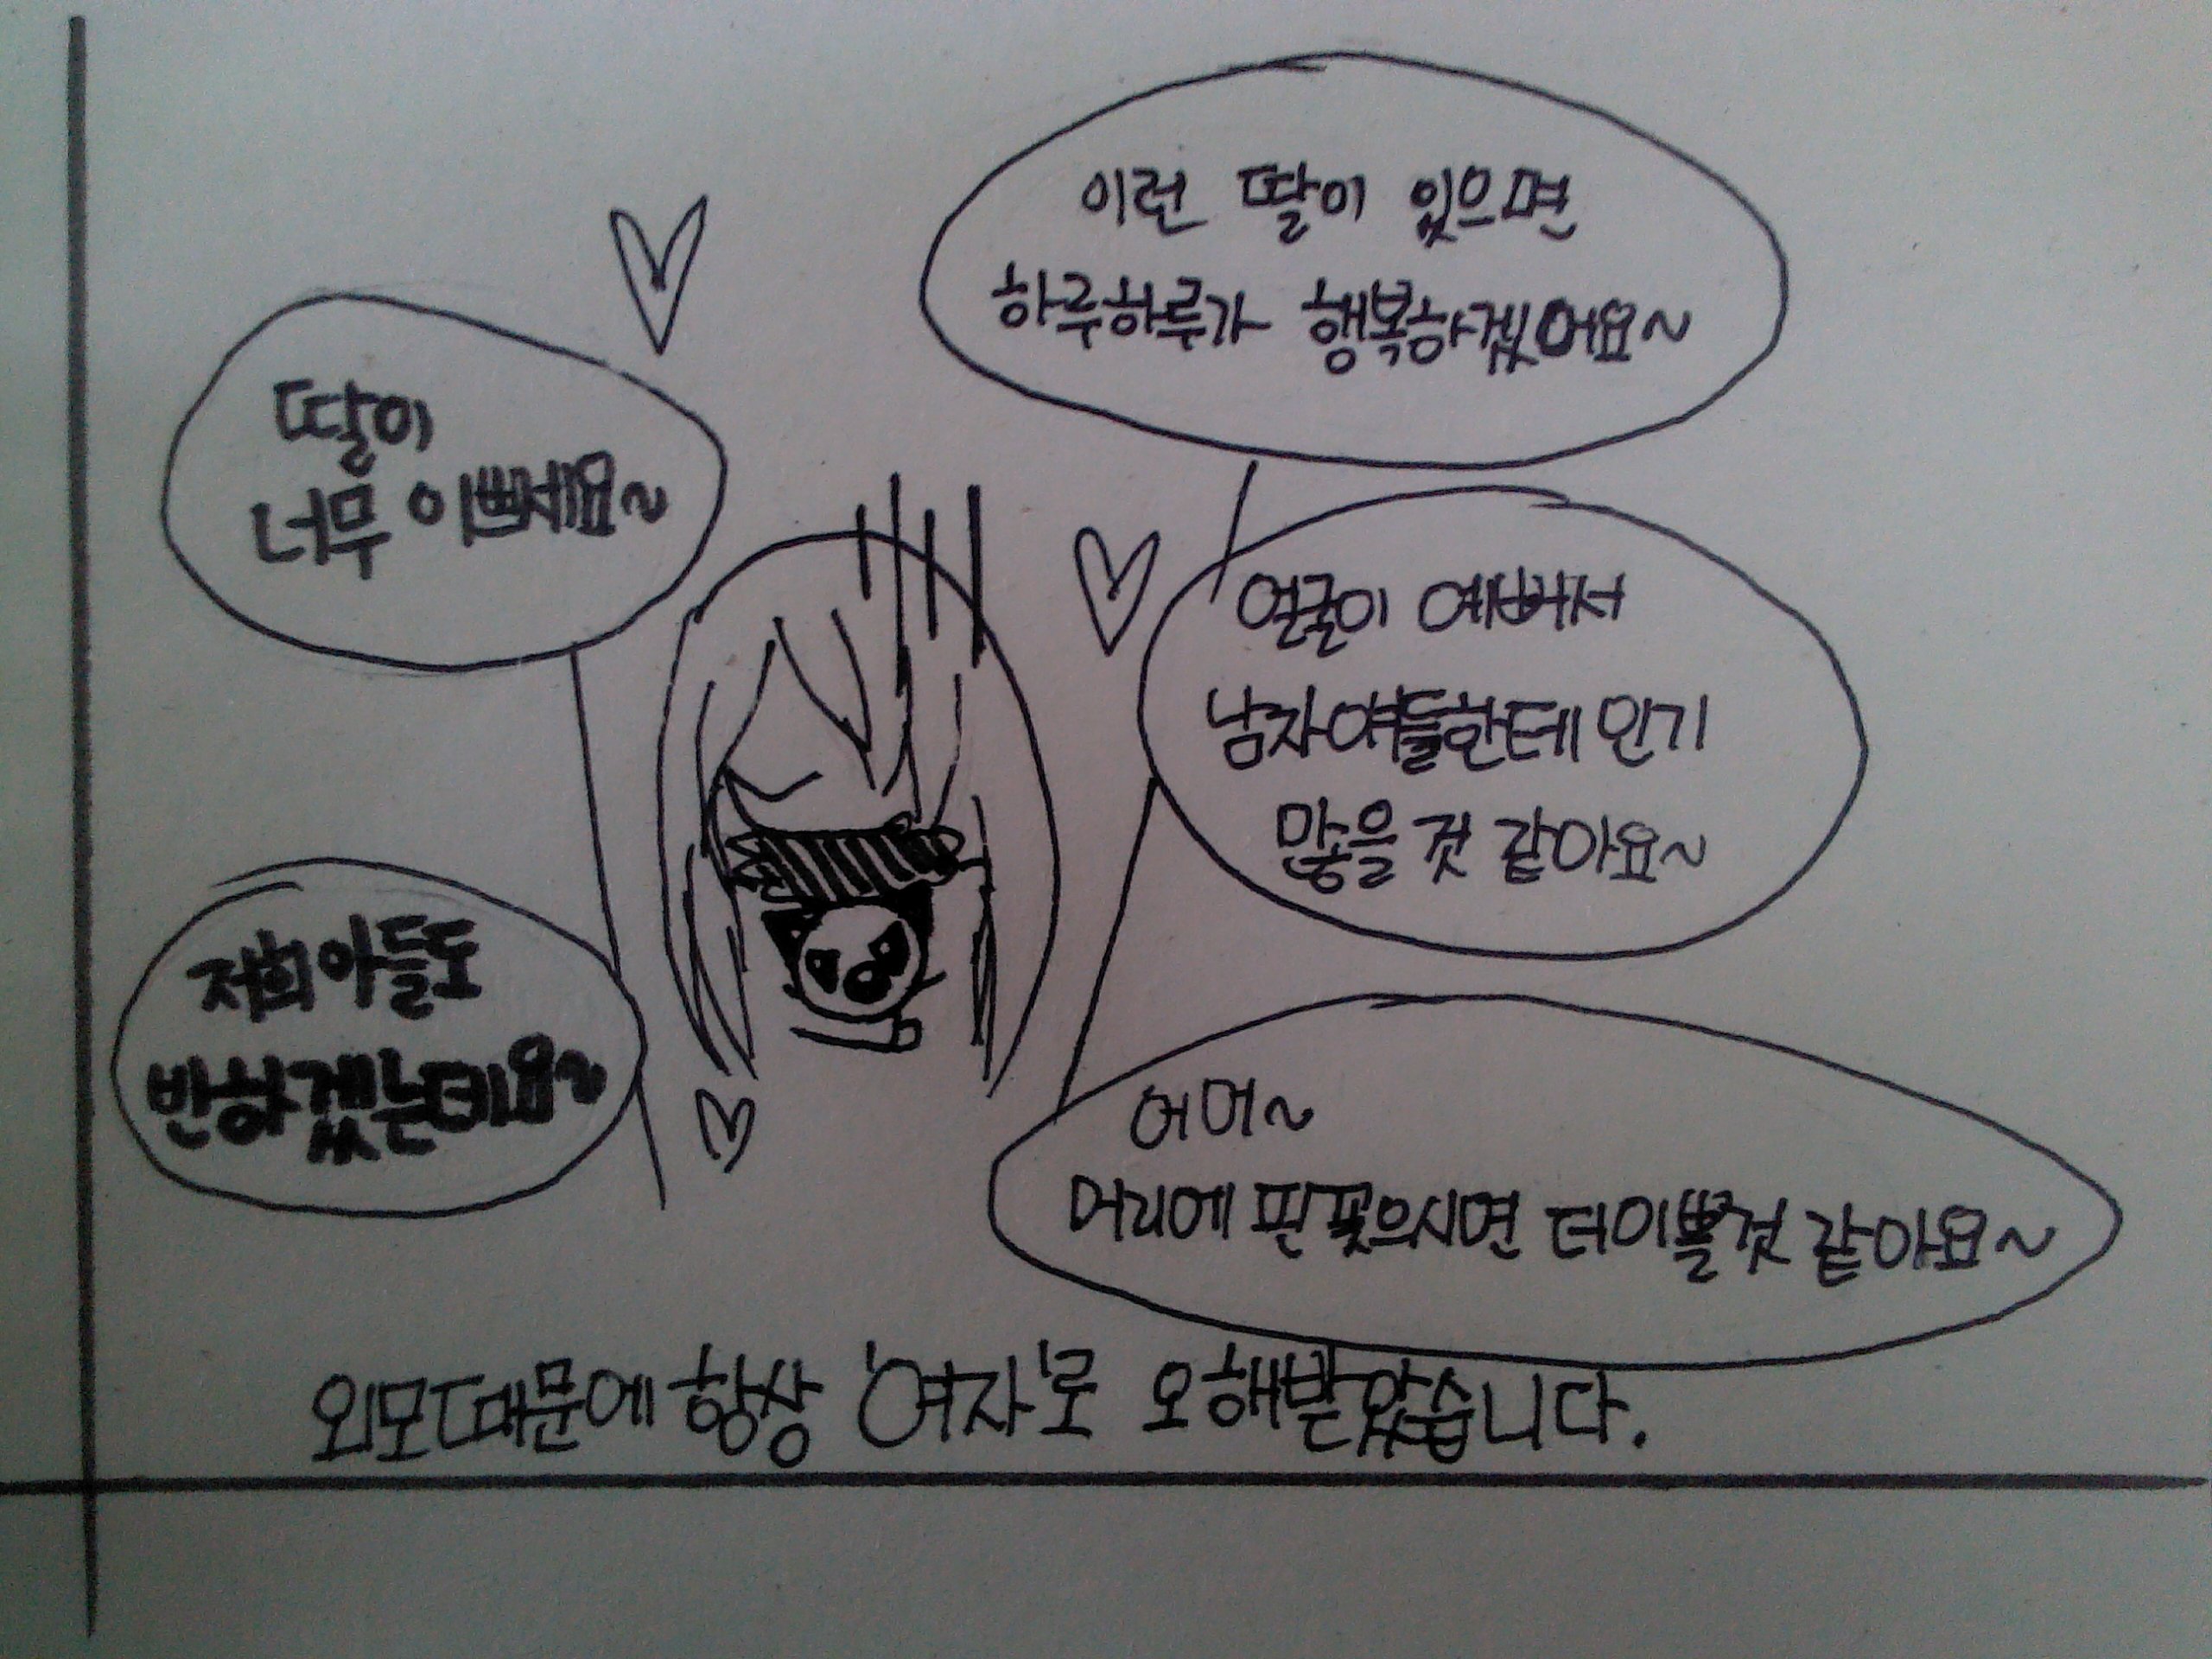 이런 딸이 있으면
하루하루가 행복하겠어요~
딸이
너무 이쁘세요~
얼굴이 예뻐서
남자얘들한테 인기
많을 것 같아요~
저희아들도
반하겠는데요~
어머~
머리에 핀꽂으시면 더이쁠것 같아요~
외모때문에 항상 '여자'로 오해받았습니다.